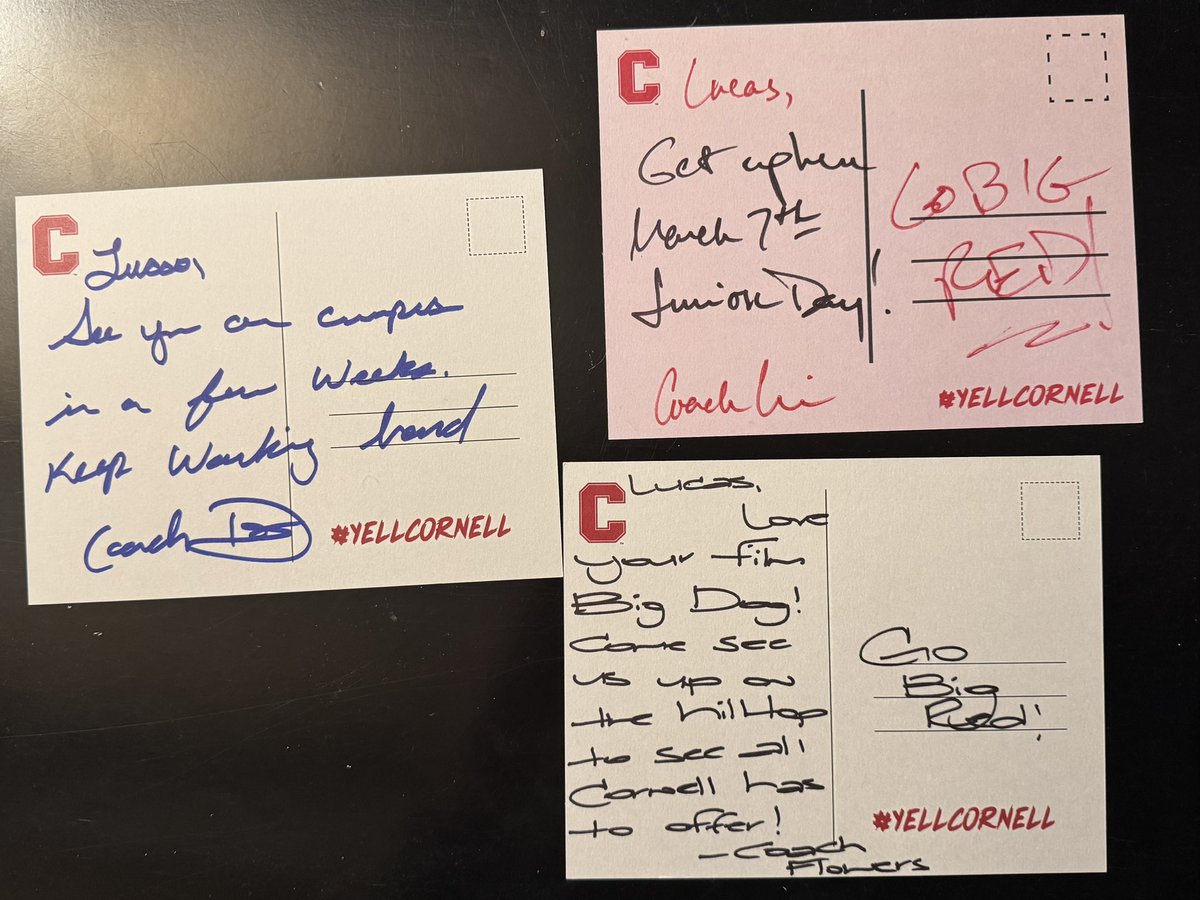 C
Lusso,
See you on campus
in a few weeks.
Keep Working hard
Coach
#YELLCORNELL
C
Lucas,
Get up here
March 7th
Junior Day!
Coach
GO BIG
RED!
#YELLCORNELL
C
Lucas,
Love
your film
Big Dog!
Come see
us up on
the hilltop
to see all
Cornell has
to offer!
- Coach
Flowers
Go
Big
Red!
#YELLCORNELL